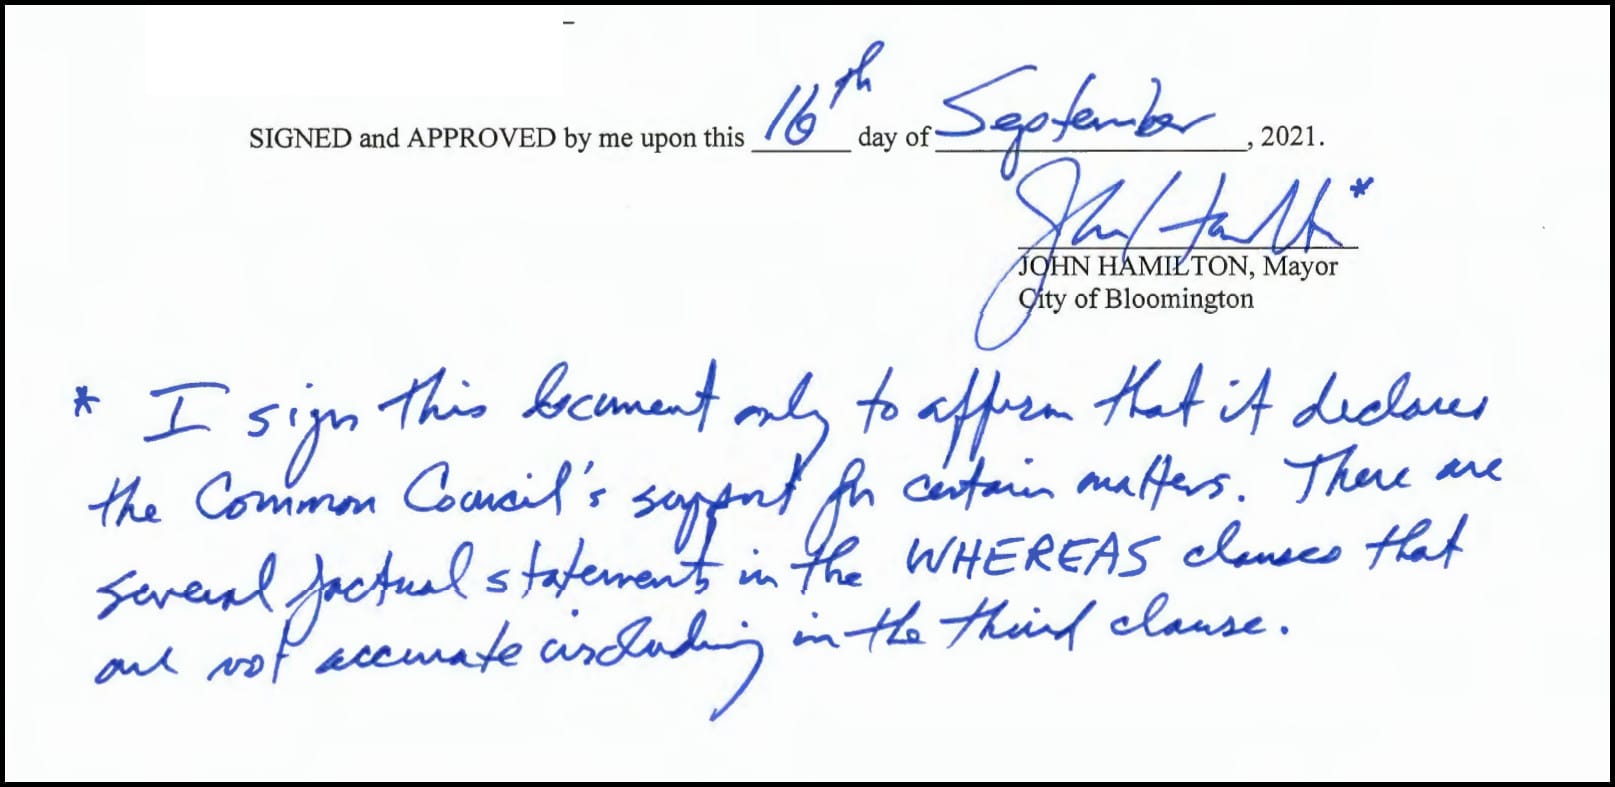 SIGNED and APPROVED by me upon this 16th day of September, 2021.
John Hamilton *
JOHN HAMILTON, Mayor
City of Bloomington
* I sign this document only to affirm that it declares
the Common Council's support for certain matters. There are
several factual statements in the WHEREAS clauses that
are not accurate including in the third clause.